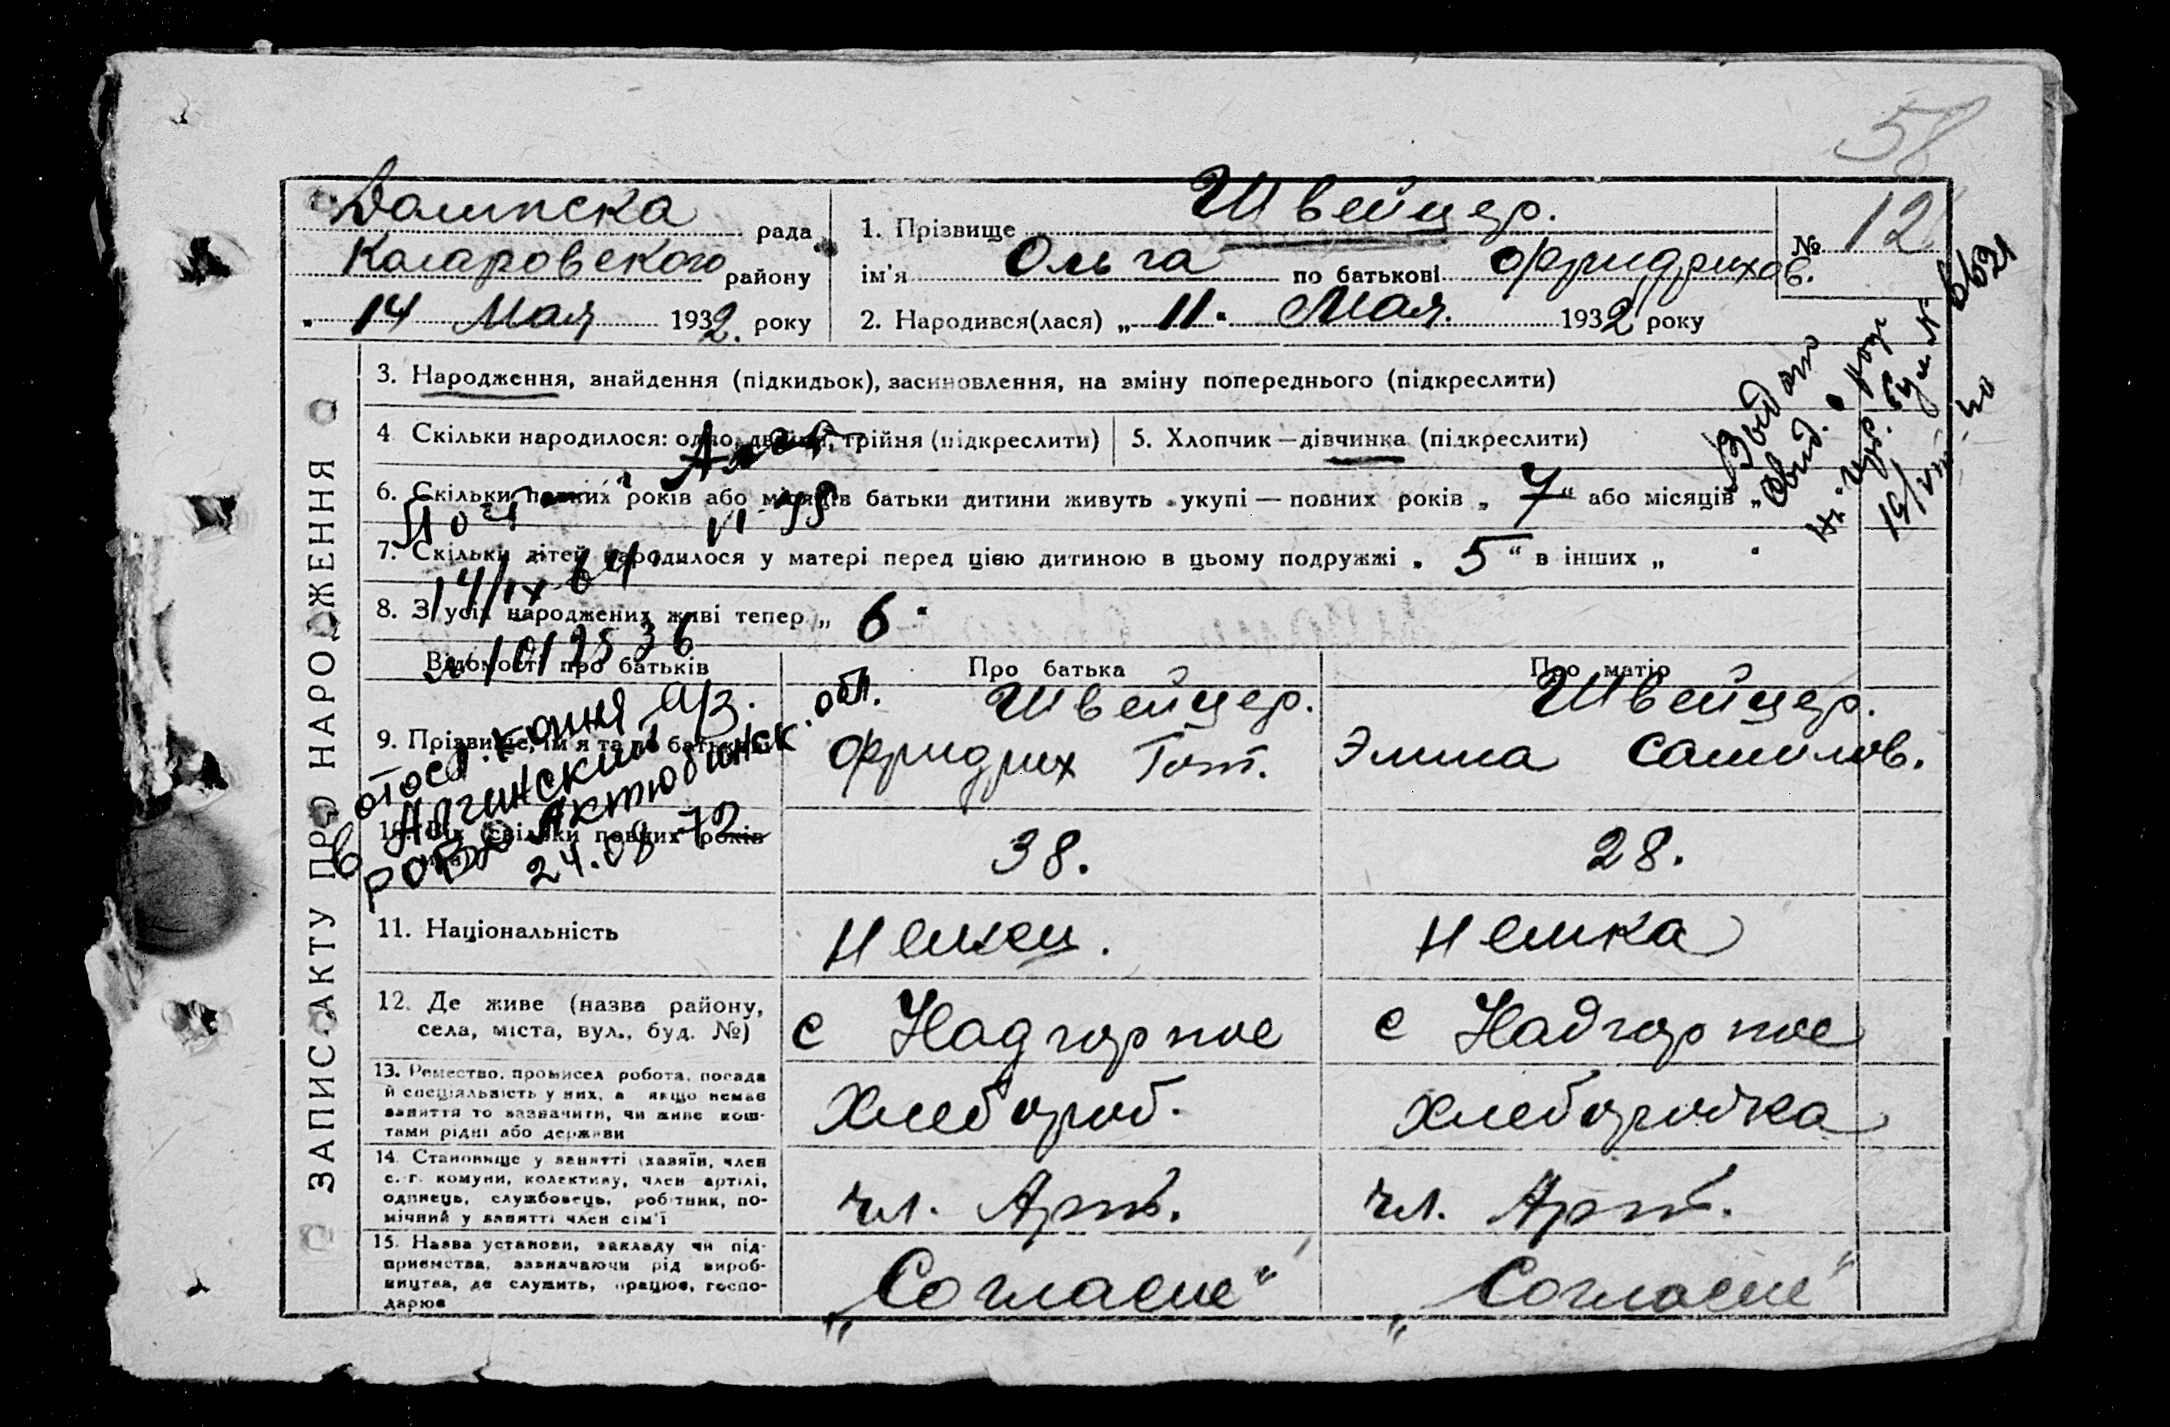 58
Долинска рада
Коларовского району
" 14 Мая 1932. року
1. Прізвище Швейцер.
ім'я Ольга по батькові Фридрихов.
№ 12
2. Народився(лася) „ 11 " Мая. 1932 року
ЗАПИС АКТУ ПРО НАРОДЖЕННЯ
3. Народження, знайдення (підкидьок), засиновлення, на зміну попереднього (підкреслити)
4. Скільки народилося: одно, двійня, трійня (підкреслити)
5. Хлопчик — дівчинка (підкреслити)
6. Скільки повних років або місяців батьки дитини живуть укупі — повних років „ 7 " або місяців „
7. Скільки дітей народилося у матері перед цією дитиною в цьому подружжі „ 5 " в інших „ "
8. З усіх народжених живі тепер „ 6 "
Відомості про батьків
Про батька
Про матір
9. Прізвище, ім'я та по батькові
Швейцер.
Фридрих Гот.
Швейцер.
Эмма Самилов.
10. Вік скільки повних років
38.
28.
11. Національність
Немец.
Немка
12. Де живе (назва району, села, міста, вул., буд. №)
с Надгорное
с Надгорное
13. Ремество, промисел робота, посада
й спеціальність у них, а якщо немає
заняття то зазначити, чи живе кош-
тами рідні або держави
Хлебороб.
Хлеборобка
14. Становище у занятті (хазяїн, член
с.-г. комуни, колективу, член артілі,
одинець, службовець, робітник, по-
мічний у занятті член сім'ї
чл. Арт.
чл. Арт.
15. Назва установи, закладу чи під-
приємства, зазначаючи рід вироб-
ництва, де служить, працює, госпо-
дарює
„Согласие"
„Согласие"
14/IX 64
в отосл. копия а/з.
Алгинский
Актюбинск. обл.
24.08 72
Выдано
свид. о рожд.